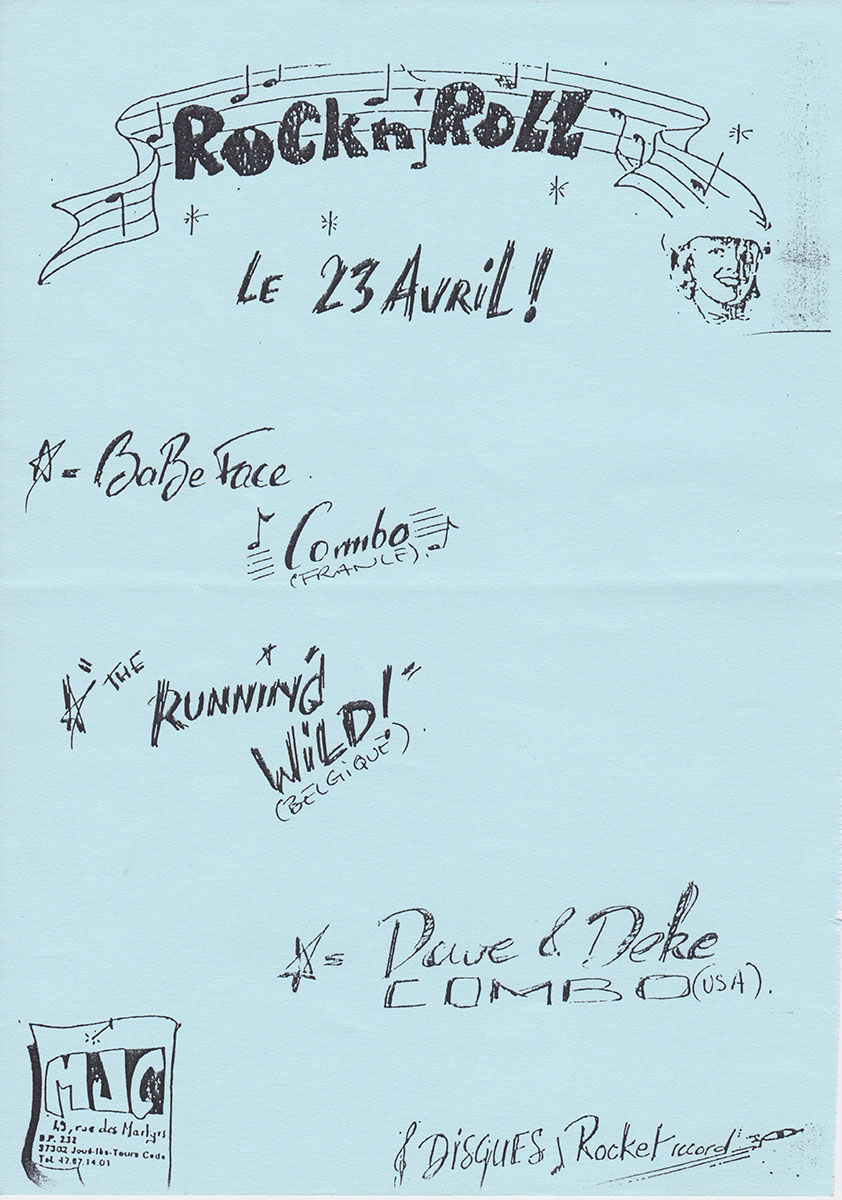 Rock n' Roll
LE 23 AVRIL!
= BaBe Face
Combo
(FRANCE).
" THE
RUNNING
WILD!"
(BELGIQUE).
= Dave & Deke
COMBO (USA).
MJC
49, rue des Martyrs
B.P. 232
37302 Joué-lès-Tours Cedex
Tel. 47.67.14.01
DISQUES Rocket record